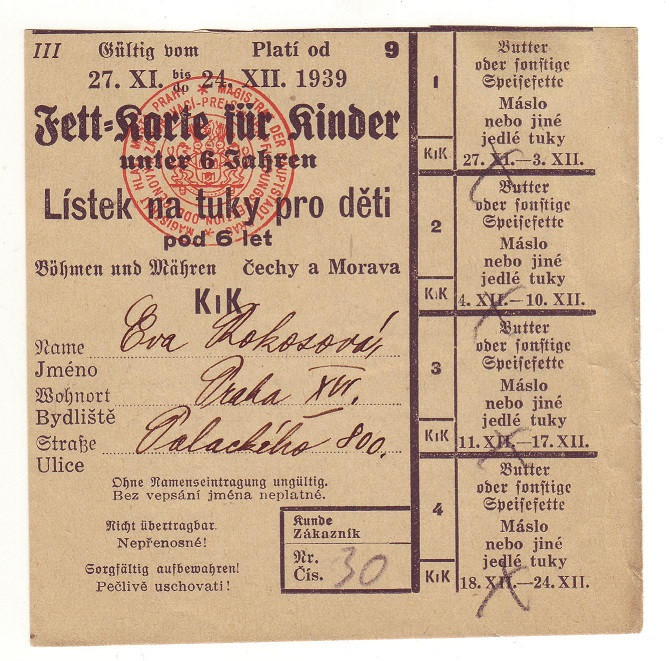 III Gültig vom Platí od 9
27. XI. bis do 24. XII. 1939
Fett-Karte für Kinder
unter 6 Jahren
Lístek na tuky pro děti
pod 6 let
Böhmen und Mähren Čechy a Morava
KiK
Name Eva Rokosová,
Jméno
Wohnort Praha XVI.
Bydliště
Straße Palackého 800.
Ulice
Ohne Namenseintragung ungültig.
Bez vepsání jména neplatné.
Nicht übertragbar.
Nepřenosné!
Sorgfältig aufbewahren!
Pečlivě uschovati!
Kunde
Zákazník
Nr.
Čís. 30
1
KiK
Butter
oder sonstige
Speisefette
Máslo
nebo jiné
jedlé tuky
27. XI.—3. XII.
2
KiK
Butter
oder sonstige
Speisefette
Máslo
nebo jiné
jedlé tuky
4. XII.—10. XII.
3
KiK
Butter
oder sonstige
Speisefette
Máslo
nebo jiné
jedlé tuky
11. XII.—17. XII.
4
KiK
Butter
oder sonstige
Speisefette
Máslo
nebo jiné
jedlé tuky
18. XII.—24. XII.